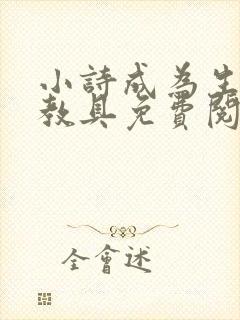 小詩成為生
教具免費閱
全會述